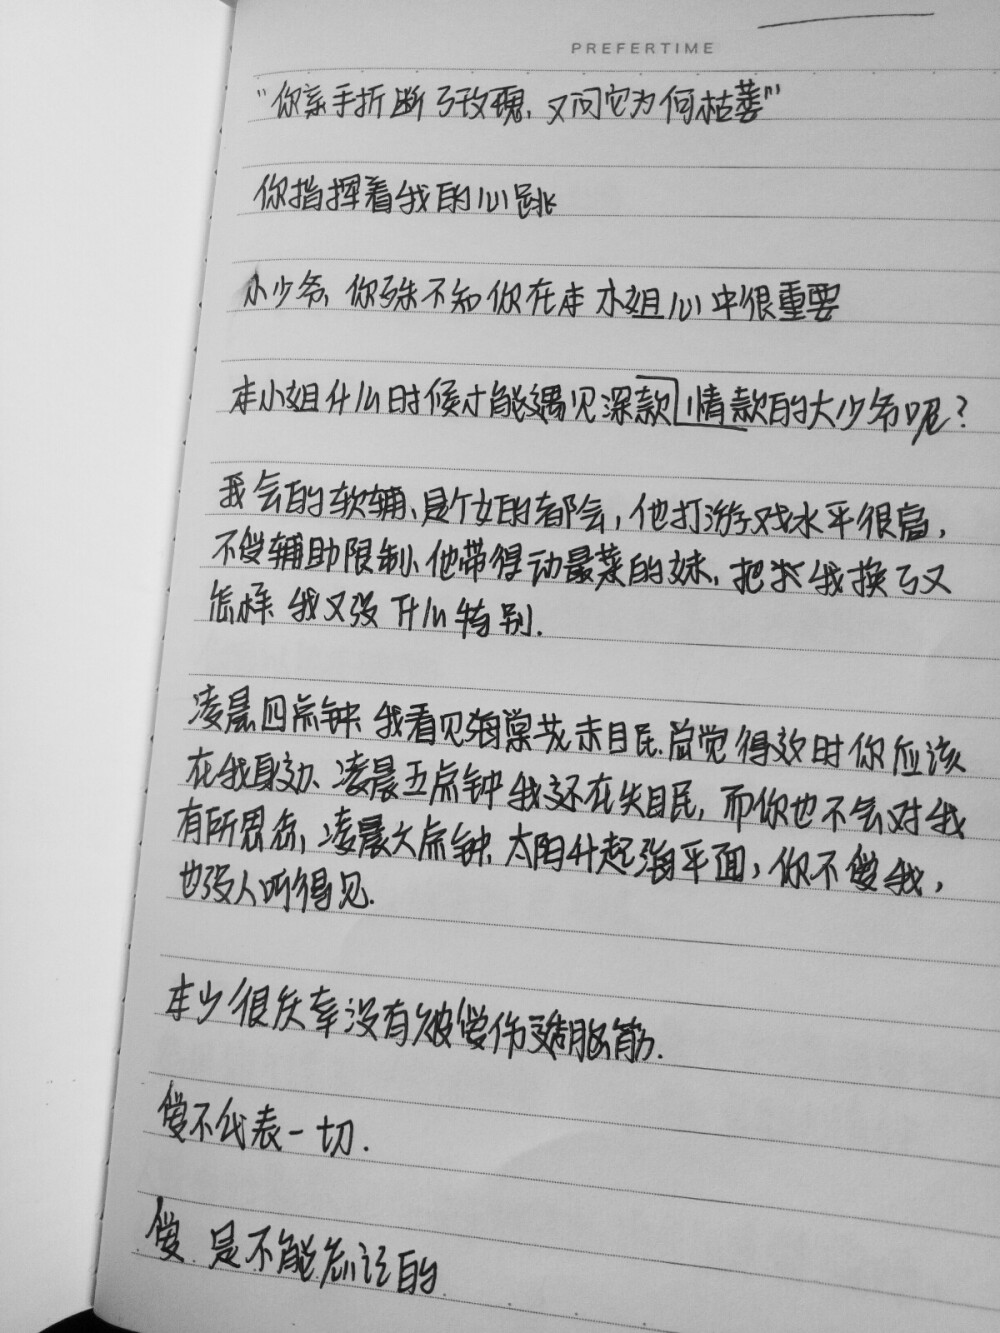 PREFERTIME
“你亲手折断了玫瑰，又问它为何枯萎”
你指挥着我的心跳
小少爷，你殊不知你在本小姐心中很重要
本小姐什么时候才能遇见深款情款的大少爷呢？
我会的软辅、是个女的都会，他打游戏水平很高，
不受辅助限制、他带得动最菜的妹，把我换了又
怎样 我又没什么特别.
凌晨四点钟 我看见海棠花未眠.总觉得效时你应该
在我身边、凌晨五点钟我还在失眠，而你也不会对我
有所思念，凌晨六点钟.太阳升起海平面，你不爱我，
也没人听得见.
本少很庆幸没有被爱伤透脑筋.
爱不代表一切.
爱 是不能忘记的